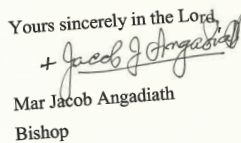 Yours sincerely in the Lord,
+ Jacob J Angadiath
Mar Jacob Angadiath
Bishop